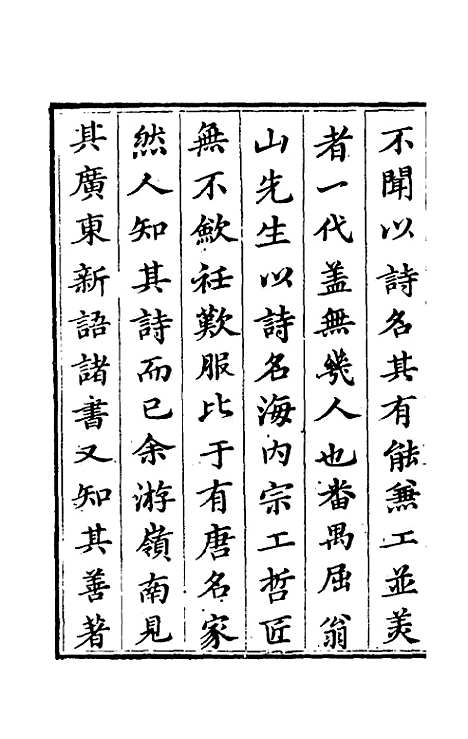 不聞以詩名其有能兼工並美
者一代葢無幾人也番禺屈翁
山先生以詩名海内宗工哲匠
無不歛衽歎服比于有唐名家
然人知其詩而已余游嶺南見
其廣東新語諸書又知其善著